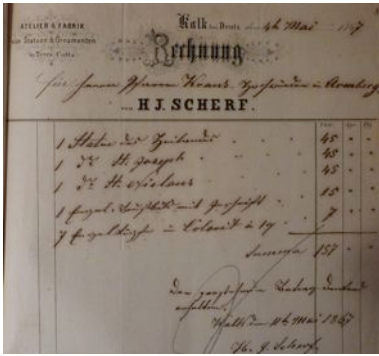 ATELIER & FABRIK
von Statuen & Ornamenten
in Terra-Cotta.
Kalk bei Deutz, den 4t Mai 1867
Rechnung
für Herrn Pfarrer
von H. J. SCHERF.
1 Statue des Heilandes 45
1 do St. Joseph 45
1 do St. 45
1 Engel mit 15
7 Engelköpfe in Colorit à 1 7
Summa 157
Den Betrag dankend
erhalten.
Kalk den 4t Mai 1867
H. J. Scherf